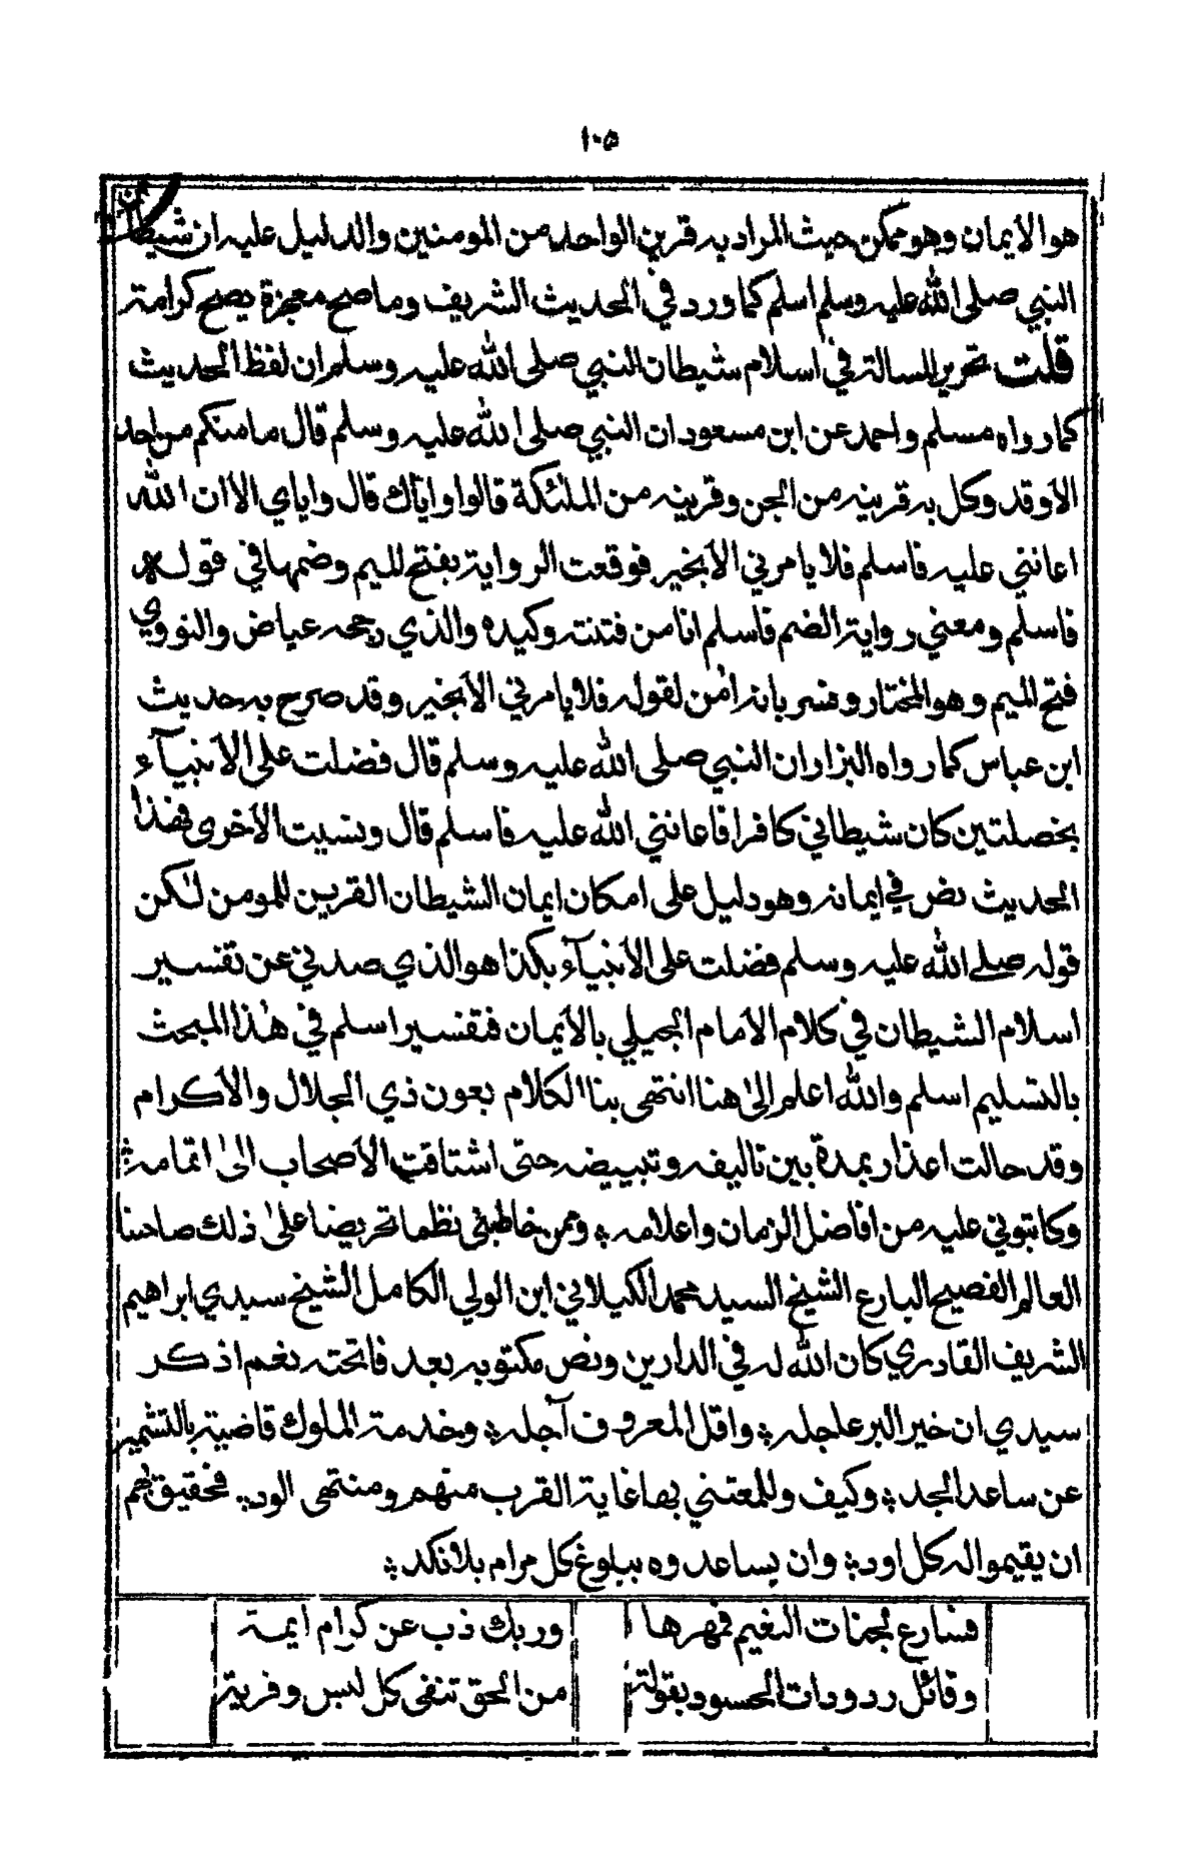 ١٠٥
هو الايمان وهو ممكن حيث المراد به قرين الواحد من المومنين والدليل عليه ان شيطان
النبي صلى الله عليه وسلم اسلم كما ورد في الحديث الشريف وما صح معجزة يصح كرامة
قلت تحرير المسالة في اسلام شيطان النبي صلى الله عليه وسلم ان لفظ الحديث
كما رواه مسلم واحمد عن ابن مسعود ان النبي صلى الله عليه وسلم قال ما منكم من احد
الا وقد وكل به قرينه من الجن وقرينه من الملئكة قالوا واياك قال واياي الا ان الله
اعانني عليه فاسلم فلا يامرني الا بخير فوقعت الرواية بفتح الميم وضمها في قوله
فاسلم ومعنى رواية الضم فاسلم انا من فتنته وكيده والذي رجحه عياض والنووي
فتح الميم وهو المختار وفسر بانه امن لقوله فلا يامرني الا بخير وقد صرح به حديث
ابن عباس كما رواه البزار ان النبي صلى الله عليه وسلم قال فضلت على الانبيآء
بخصلتين كان شيطاني كافرا فاعانني الله عليه فاسلم قال ونسيت الاخرى فهذا
الحديث نص في ايمانه وهو دليل على امكان ايمان الشيطان القرين للمومن لكن
قوله صلى الله عليه وسلم فضلت على الانبيآء بكذا هو الذي صدني عن تفسير
اسلام الشيطان في كلام الامام الجيلي بالايمان فتفسير اسلم في هذا المبحث
بالتسليم اسلم والله اعلم الى هنا انتهى بنا الكلام بعون ذي الجلال والاكرام
وقد حالت اعذار بمدة بين تاليفه وتبييضه حتى اشتاقت الاصحاب الى اتمامه
وكاتبوني عليه من افاضل الزمان واعلامه ومن خاطبني نظما تحريضا على ذلك صاحبنا
العالم الفصيح البارع الشيخ السيد محمد الكيلاني ابن الولي الكامل الشيخ سيدي ابراهيم
الشريف القادري كان الله له في الدارين ونص مكتوبه بعد فاتحته نعم اذكر
سيدي ان خير البر عاجله واقل المعروف آجله وخدمة الملوك قاضية بالتشمير
عن ساعد الجد وكيف وللمعتني بها غاية القرب منهم ومنتهى الود فحقيق لهم
ان يقيموا له كل اود وان يساعدوه ببلوغ كل مرام بلا نكد
فسارع لجنات النعيم فمهرها وربك ذب عن كرام ايمة
وقائل ردودات الحسود بقولة من الحق تنفى كل لبس وفرية